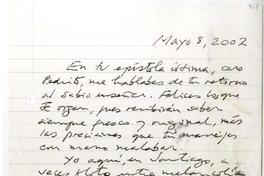 Mayo 8, 2002
En tu epístola última, caro
Pedrito, me hablabas de tu retorno
al sabio enseñar. Felices los que
te oigan, pues recibirán saber
siempre fresco y original, más
las precisiones que tú manejas
con mano malabar.
Yo aquí, en Santiago, a
veces floto entre melancolía